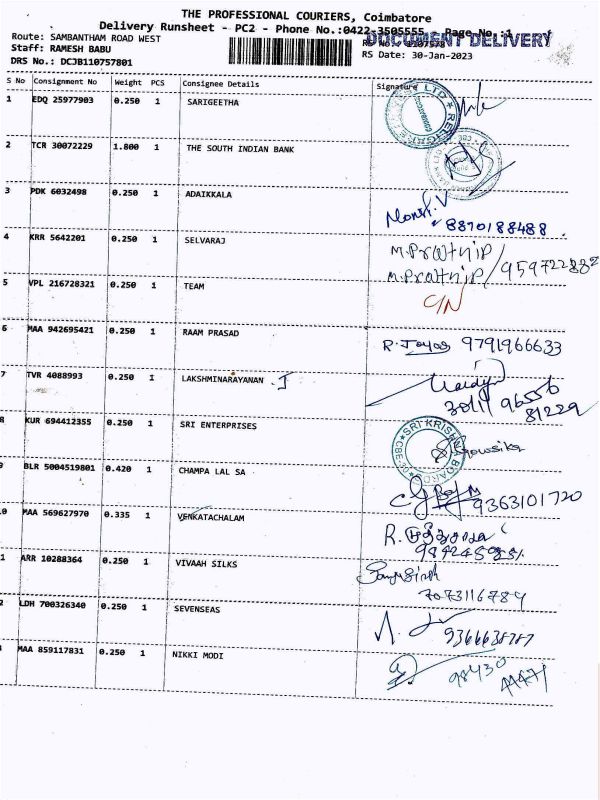 THE PROFESSIONAL COURIERS, Coimbatore
Delivery Runsheet - PC2 - Phone No.:0422-3505555 Page No.:1
Route: SAMBANTHAM ROAD WEST
DOCUMENT DELIVERY
Staff: RAMESH BABU
RS No.: 1107578
DRS No.: DCJB110757801
RS Date: 30-Jan-2023
S No Consignment No Weight PCS Consignee Details Signature
1 EDQ 25977903 0.250 1 SARIGEETHA
2 TCR 30072229 1.800 1 THE SOUTH INDIAN BANK
3 PDK 6032498 0.250 1 ADAIKKALA
8870188488
4 KRR 5642201 0.250 1 SELVARAJ
5 VPL 216728321 0.250 1 TEAM
C/N
6 MAA 942695421 0.250 1 RAAM PRASAD
9791966633
7 TVR 4088993 0.250 1 LAKSHMINARAYANAN
30/1 96556
81229
8 KUR 694412355 0.250 1 SRI ENTERPRISES
9 BLR 5004519801 0.420 1 CHAMPA LAL SA
9363101720
0 MAA 569627970 0.335 1 VENKATACHALAM
1 ARR 10288364 0.250 1 VIVAAH SILKS
7073116784
2 LDH 700326340 0.250 1 SEVENSEAS
9366638787
MAA 859117831 0.250 1 NIKKI MODI
98430
44471